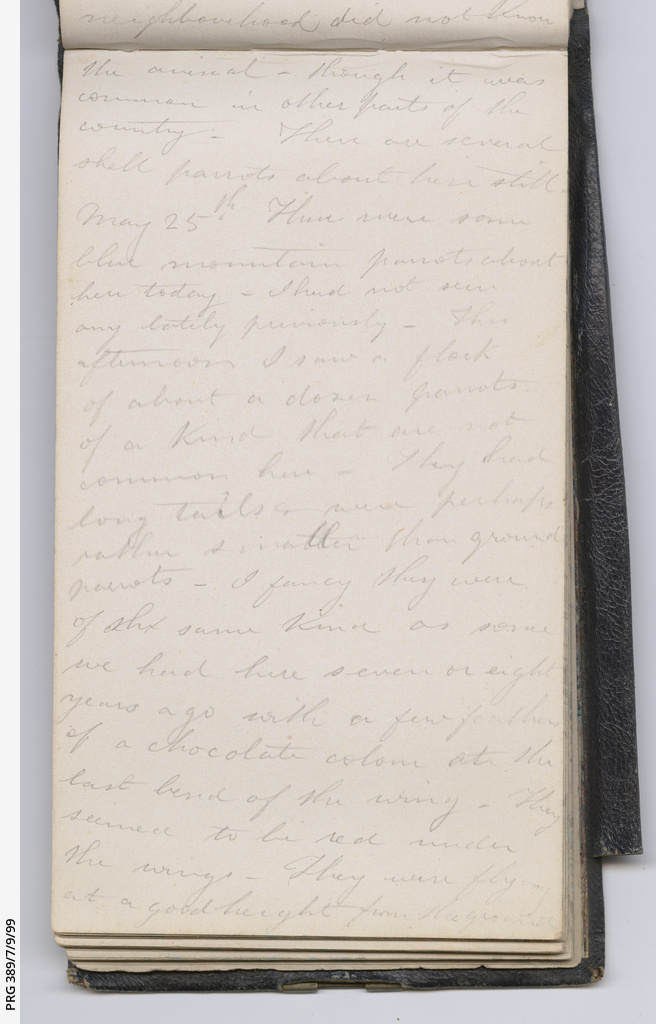 neighbourhood did not know
the animal - though it was
common in other parts of the
country - There are several
shell parrots about here still -
May 25th There were some
blue mountain parrots about
here today - I had not seen
any lately previously - This
afternoon I saw a flock
of about a dozen parrots
of a kind that are not
common here - They had
long tails & were perhaps
rather smaller than ground
parrots - I fancy they were
of the same kind as some
we had here seven or eight
years ago with a few feathers
of a chocolate colour at the
last bend of the wing - They
seemed to be red under
the wings - They were flying
at a good height from the ground
PRG 389/7/9/99